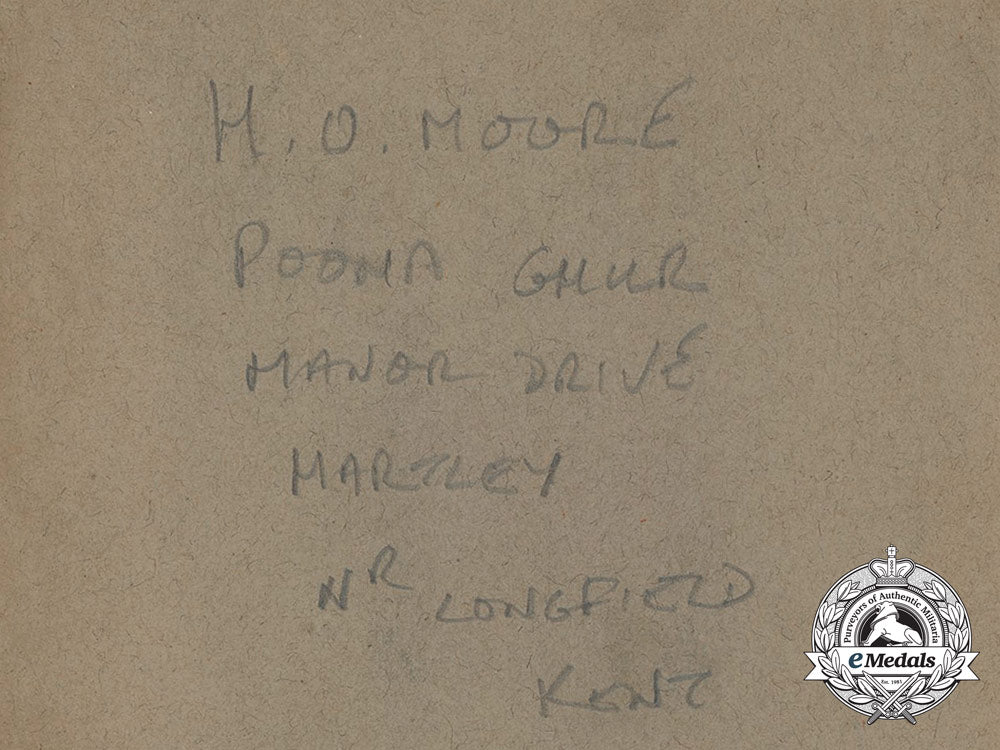 H. O. MOORE
POONA GHUR
MANOR DRIVE
HARTLEY
NR LONGFIELD
KENT
Purveyors of Authentic Militaria
eMedals
Est. 1981